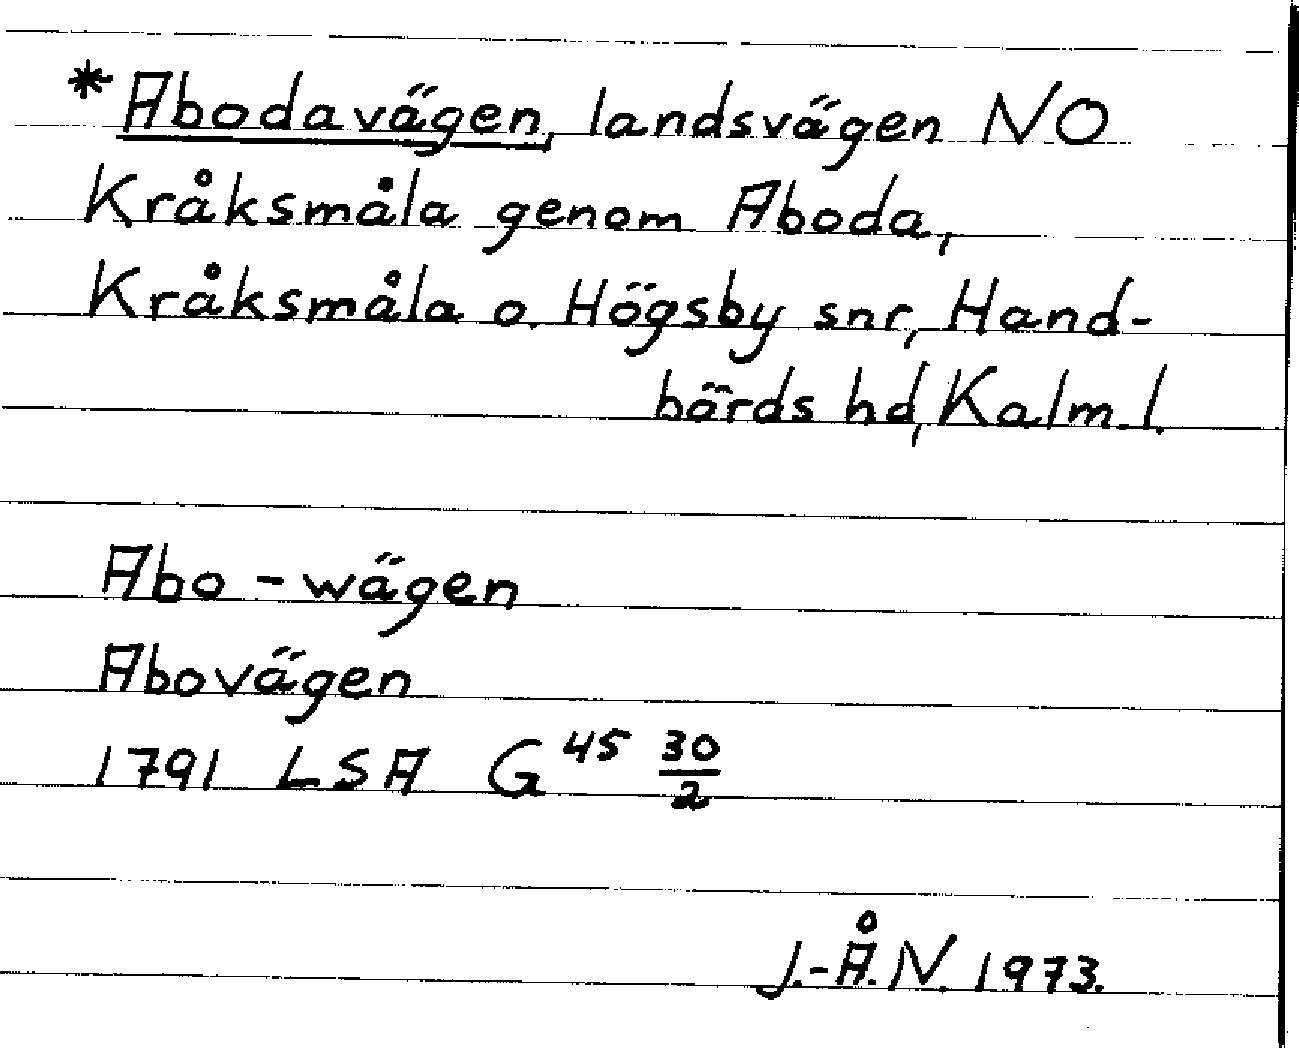 *Abodavägen, landsvägen NO
Kråksmåla genom Aboda,
Kråksmåla o. Högsby snr, Hand-
börds hd, Kalm. l.
Abo-wägen
Abovägen
1791 LSA G45 30/2
J.-Å.N. 1973.